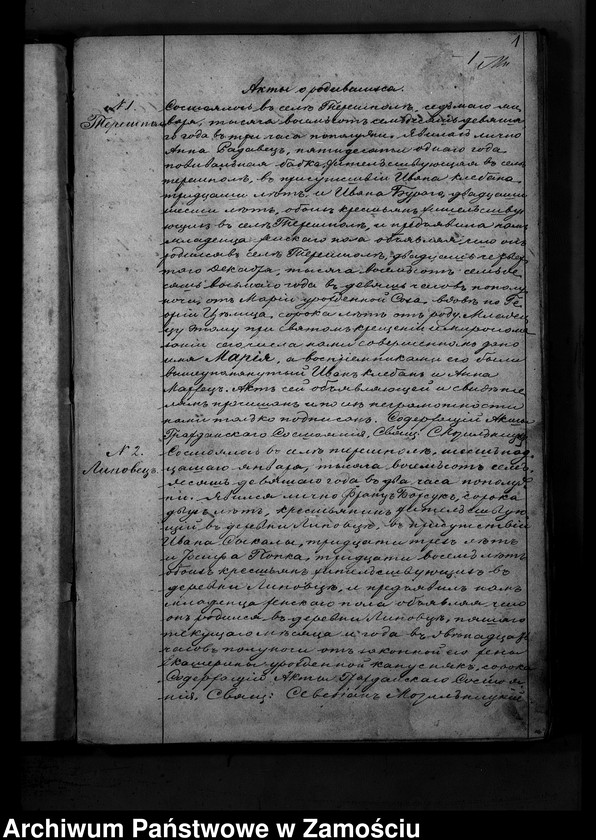 1
Акты о родившихся.
№ 1
Терешполь
Состоялось въ селѣ Терешполѣ, седьмаго ян
варя, тысяча восемьсотъ семьдесятъ девята
го года въ три часа пополудни. Явилась лично
Анна Радавецъ, пятидесяти одного года
повивальная бабка жительствующая въ селѣ
терешполѣ, въ присутствіи Ивана Клебана
тридцати лѣтъ и Ивана Бураго, двадцати
шести лѣтъ, обоихъ крестьянъ жительству
ющихъ въ селѣ Терешполѣ, и предъявила намъ
младенца женскаго пола объявляя, что онъ
родился въ селѣ Терешполѣ, двадцать четвер
таго Декабря, тысяча восемьсотъ семьде
сятъ восьмаго года въ девять часовъ пополу
ночи, отъ Маріи урожденной Соха, вдовы по Ге
оргіи сорока лѣтъ отъ роду. Младен
цу этому при святомъ крещеніи и миропома
заніи сего числа нами совершенномъ дано
имя Марія, а воспріемниками его были
вышеупомянутый Иванъ Клебанъ и Анна
Актъ сей объявляющей и свидѣте
лямъ прочитанъ и по ихъ неграмотности
нами только подписанъ. Содержащій Акты
Гражданскаго Состоянія, Свящ.
№ 2.
Липовецъ
Состоялось въ селѣ терешполѣ, шестьнад
цатаго января, тысяча восемьсотъ семь
десятъ девятаго года въ два часа пополуд
ни. Явился лично Францъ Борсукъ, сорока
лѣтъ, крестьянинъ жительствую
щій въ деревни Липовцѣ, въ присутствіи
Ивана тридцати трехъ лѣтъ
и Іосифа Попка, тридцати восемь лѣтъ
обоихъ крестьянъ жительствующихъ въ
деревни Липовцѣ, и предъявилъ намъ
младенца женскаго пола объявляя, что
онъ родился въ деревни Липовцѣ, пятаго
текущаго мѣсяца и года въ
часовъ полуночи отъ законной его жены
Екатерины урожденной Капуснякъ, сорока
Содержащій Акты Гражданскаго Состоя
нія. Свящ: Северіанъ
Archiwum Państwowe w Zamościu